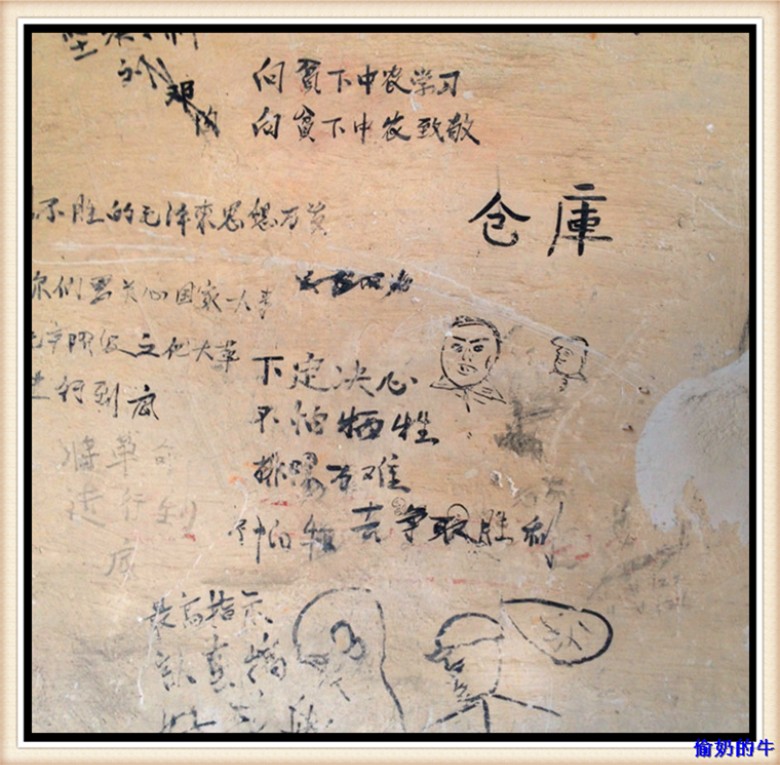 向贫下中农学习
向贫下中农致敬
不胜的毛泽东思想万岁
仓庫
你们要关心国家大事
无产阶级文化大革
进行到底
下定决心
不怕牺牲
排除万难
去争取胜利
将革命
进行到
底
最高指示
认真搞
偷奶的牛